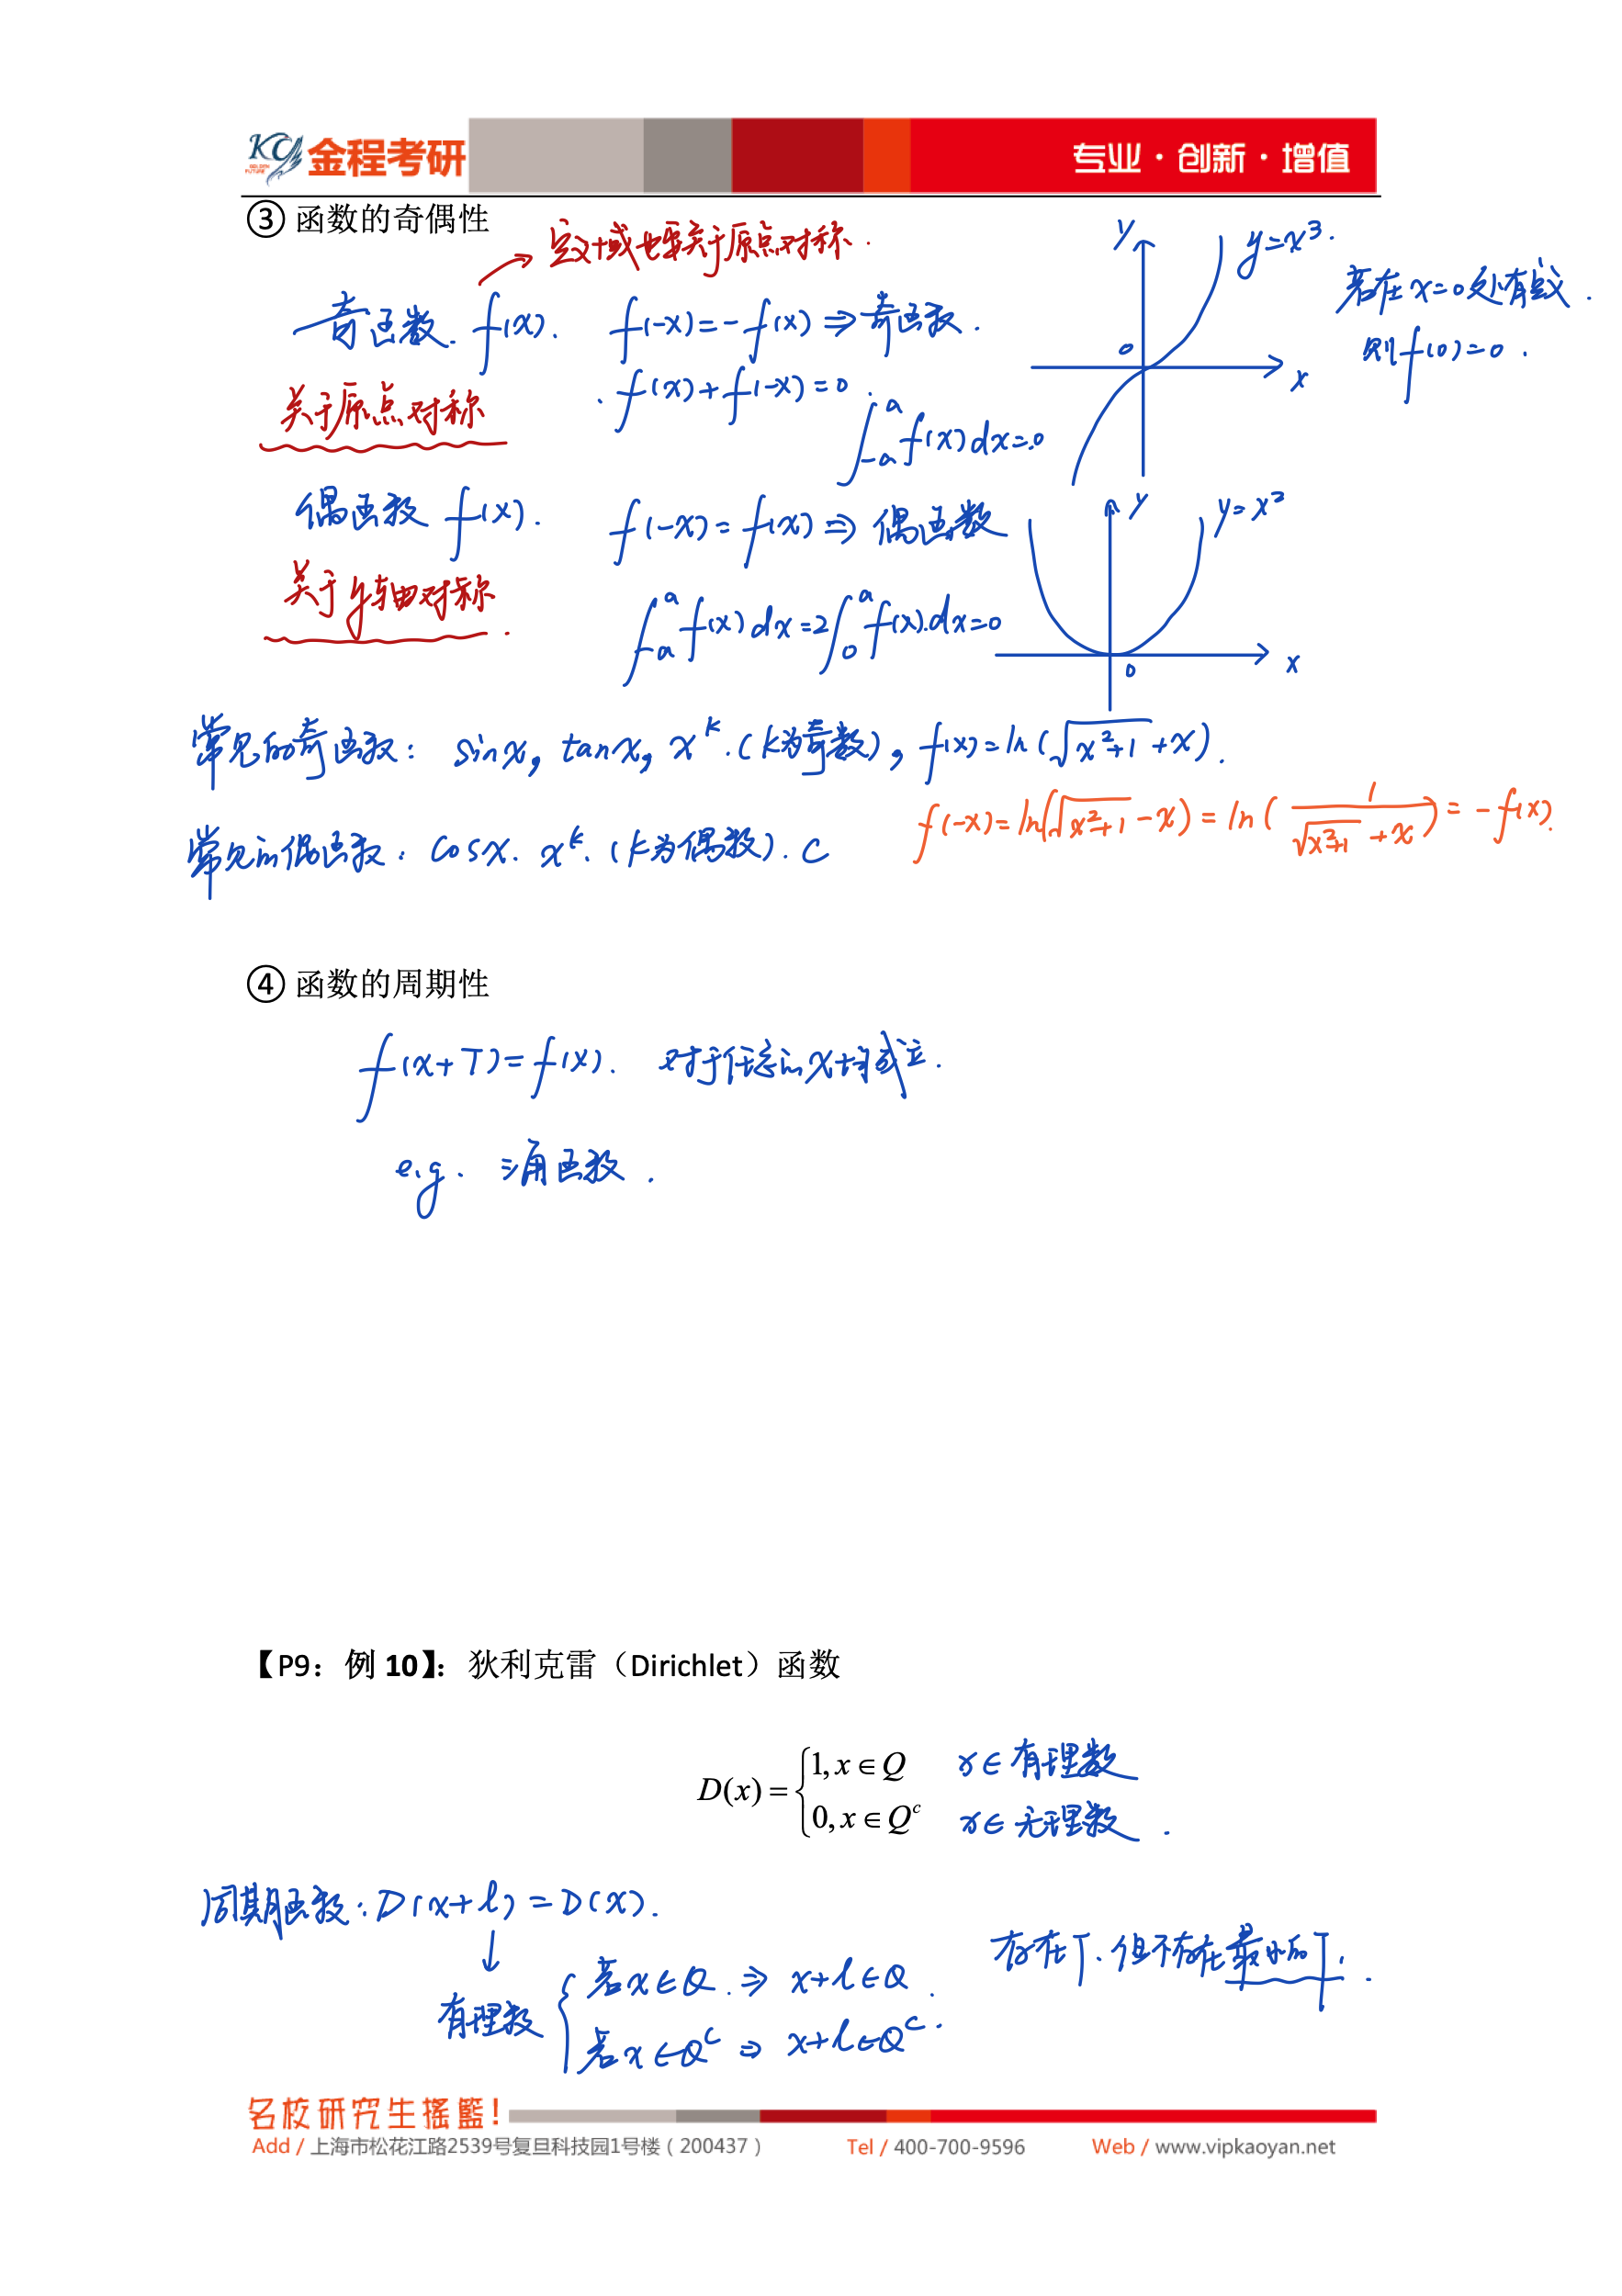 KC
GOLDEN FUTURE
金程考研
专业·创新·增值
③ 函数的奇偶性
定义域也要关于原点对称.
奇函数. f(x). f(-x)=-f(x) ⇒ 奇函数.
f(x)+f(-x)=0.
关于原点对称
∫_{-a}^{a} f(x)dx=0
y
y=x³.
0
x
若在x=0处有定义.
则f(0)=0.
偶函数 f(x). f(-x)=f(x) ⇒ 偶函数
关于y轴对称.
∫_{-a}^{a} f(x)dx=2∫_{0}^{a} f(x).dx=0
y
y=x²
0
x
常见的奇函数: sinx, tanx, x^k.(k为奇数), f(x)=ln(√(x²+1)+x).
f(-x)=ln(√(x²+1)-x)=ln(1/(√(x²+1)+x))=-f(x).
常见的偶函数: cosx. x^k.(k为偶数). C
④ 函数的周期性
f(x+T)=f(x). 对于任意的x均成立.
e.g. 三角函数.
【P9：例 10】：狄利克雷（Dirichlet）函数
D(x)={1, x∈Q x∈有理数
0, x∈Q^c x∈无理数.
周期函数: D(x+l)=D(x).
↓
有理数 { 若x∈Q. ⇒ x+l∈Q.
若x∈Q^c ⇒ x+l∈Q^c.
存在T.但不存在最小的T.
名校研究生摇篮!
Add / 上海市松花江路2539号复旦科技园1号楼（200437） Tel / 400-700-9596 Web / www.vipkaoyan.net